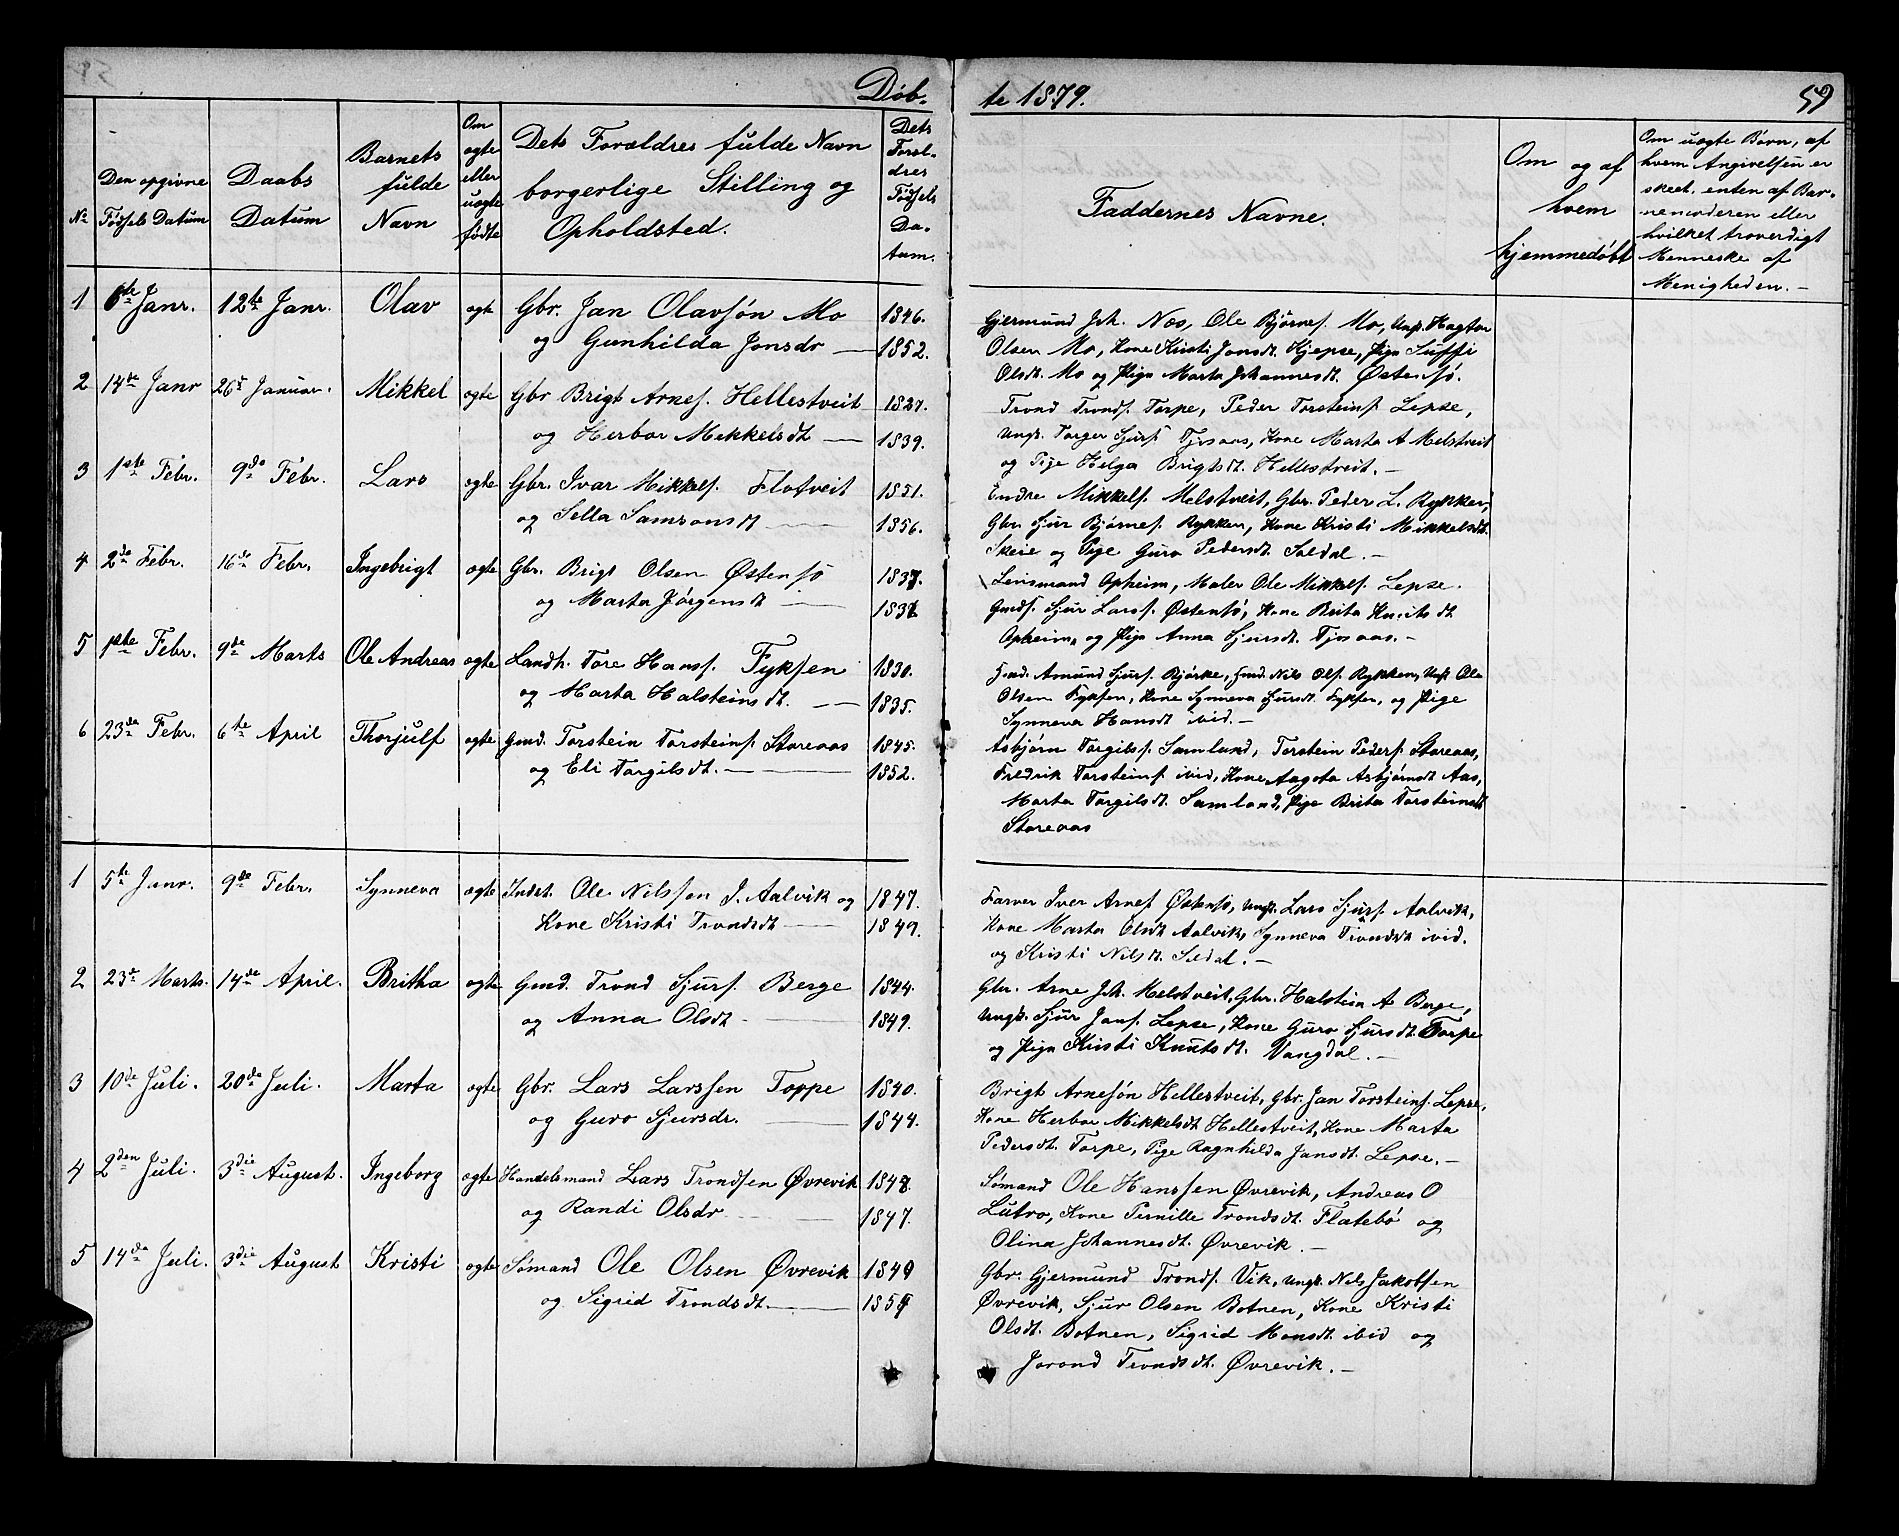 Døb.
te 1879.
59
No
Den opgivne
Fødsels Datum
Daabs
Datum
Barnets
fulde
Navn
Om
ægte
eller
uægte
fødte
Dets Forældres fulde Navn
borgerlige Stilling og
Opholdsted.
Dets
Foræl-
dres
Fødsels
Da-
tum.
Faddernes Navne.
Om og af
hvem
hjemmedøbt
Om uægte Børn, af
hvem Angivelsen er
skeet, enten af Bar-
nemoderen eller
hvilket troverdigt
Menneske af
Menigheden. -
1 6te Janr. 12te Janr. Olav ægte Gbr. Jan Olavsøn Mo 1846.
og Gunhilda Jonsdr 1852.
Gjermund Joh. Næs, Ole Bjørnes. Mo, Ungk. Hagtor
Olsen Mo, Kone Kristi Jonsdt. Kjepse, Pige Suffi
Olsdt. Mo og Pige Marta Johannesdt. Østensø.
2 14de Janr 26de Januar. Mikkel ægte Gbr Brigt Arnes. Hellestveit 1827.
og Herbor Mikkelsdt 1839.
Trond Tronds. Torpe, Peder Torsteins. Lepse,
Ungk. Torger Sjurs. Tjosaas, Kone Marta A Melstveit
og Pige Helga Brigtsdt. Hellestveit. -
3 1ste Febr. 9de Febr. Lars ægte Gbr. Ivar Mikkels. Flotveit 1851.
og Sella Samsonsdt 1856.
Endre Mikkels. Melstveit, Gbr. Peder L. Rykken,
Gbr. Sjur Bjørnes. Rykken, Kone Kristi Mikkelsdt.
Skeie og Pige Guro Pedersdt. Soldal. -
4 2de Febr. 16de Febr. Ingebrigt ægte Gbr. Brigt Olsen Østensø 1837.
og Marta Jørgensdt 183
Lensmand Opheim, Maler Ole Mikkels. Lepse.
Gmds. Sjur Lars s. Østensø, Kone Brita Knutsdt
Opheim, og Pige Anna Sjursdt. Tjosaas. -
5 1ste Febr. 9de Marts Ole Andreas ægte Landh. Tore Hans s. Fyksen 1830.
og Marta Halsteinsdt. 1835.
Gmd. Amund Sjurs. Bjørke, Gmd. Nils Ols. Rykken, Ungk Ole
Olsen Fyksen, Kone Synneva Sjursdt. Fyksen, og Pige
Synneva Hansdt ibid. -
6 23de Febr. 6te April Thorjulf ægte Gmd. Torstein Torsteins. Storeaas 1845.
og Eli Torgilsdt. 1852.
Asbjørn Torgils. Samland, Torstein Peders. Storeaas,
Fredrik Torsteins. ibid, Kone Aagota Asbjørnsdt Aas,
Marta Torgilsdt. Samland, Pige Brita Torsteinsdt
Storeaas
1 5te Janr. 9de Febr. Synneva ægte Indst. Ole Nilssen I. Aalvik og 1847.
Kone Kristi Trondsdt 1849.
Farver Iver Arnes Østensø, Ungk. Lars Sjurs. Aalvik,
Kone Marta Olsdt Aalvik, Synneva Trondsdt ibid.
og Kristi Nilsdt. Soldal. -
2 23de Marts. 14de April. Britha ægte Gmd. Trond Sjurs. Berge 1844.
og Anna Olsdt 1849.
Gbr. Arne Joh. Melstveit, Gbr. Halstein A Berge,
Ungk. Sjur Jans. Lepse, Kone Guro Sjursdt. Torpe
og Pige Kristi Knutsdt. Vangdal. -
3 10de Juli. 20de Juli. Marta ægte Gbr. Lars Larssen Torpe 1840.
og Guro Sjursdr. 1844.
Brigt Arnesøn Hellestveit, Gbr. Jan Torsteins. Lepse,
Kone Herbor Mikkelsdt Hellestveit, Kone Marta
Pedersdt. Torpe, Pige Ragnhilda Jansdt. Lepse. -
4 2den Juli. 3die August. Ingeborg ægte Handelsmand Lars Trondsen Øvrevik 1848.
og Randi Olsdr 1847.
Sømand Ole Hanssen Øvrevik, Andreas O
Lutro, Kone Pernille Trondsdt. Flatebø og
Olina Johannesdt. Øvrevik. -
5 14de Juli. 3die August Kristi ægte Sømand Ole Olsen Øvrevik 1849
og Sigrid Trondsdt.
Gbr. Gjermund Tronds. Vik, Ungk. Nils Jakobsen
Øvrevik, Sjur Olsen Botnen, Kone Kristi
Olsdt. Botnen, Sigrid Monsdt. ibid og
Jorond Trondsdt. Øvrevik. -